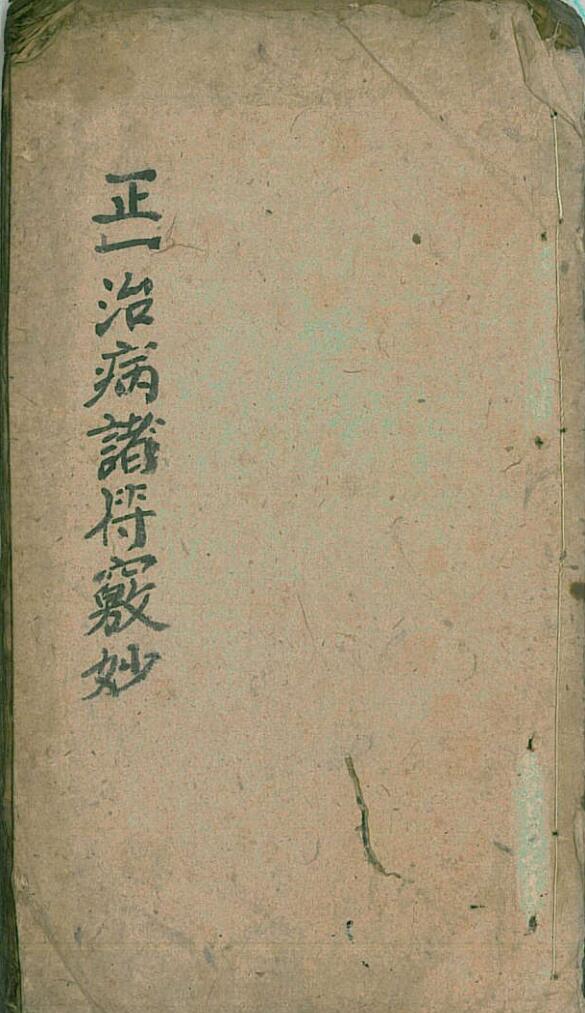 正一治病諸符竅妙